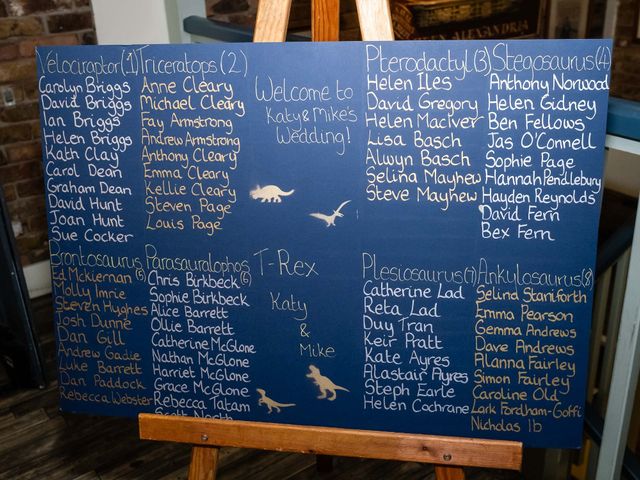 Velociraptor (1)
Carolyn Briggs
David Briggs
Ian Briggs
Helen Briggs
Kath Clay
Carol Dean
Graham Dean
David Hunt
Joan Hunt
Sue Cocker
Triceratops (2)
Anne Cleary
Michael Cleary
Fay Armstrong
Andrew Armstrong
Anthony Cleary
Emma Cleary
Kellie Cleary
Steven Page
Louis Page
Welcome to
Katy & Mike's
Wedding!
Pterodactyl (3)
Helen Iles
David Gregory
Helen MacIver
Lisa Basch
Alwyn Basch
Selina Mayhew
Steve Mayhew
Stegosaurus (4)
Anthony Norwood
Helen Gidney
Ben Fellows
Jas O'Connell
Sophie Page
Hannah Pendlebury
Hayden Reynolds
David Fern
Bex Fern
Brontosaurus (5)
Ed Mckiernan
Molly Imrie
Steven Hughes
Josh Dunne
Dan Gill
Andrew Gadie
Luke Barrett
Dan Paddock
Rebecca Webster
Parasauralophos (6)
Chris Birkbeck
Sophie Birkbeck
Alice Barrett
Ollie Barrett
Catherine McGlone
Nathan McGlone
Harriet McGlone
Grace McGlone
Rebecca Tatam
Scott North
T-Rex
Katy
&
Mike
Plesiosaurus (7)
Catherine Lad
Reta Lad
Duy Tran
Keir Pratt
Kate Ayres
Alastair Ayres
Steph Earle
Helen Cochrane
Ankylosaurus (8)
Selina Staniforth
Emma Pearson
Gemma Andrews
Dave Andrews
Alanna Fairley
Simon Fairley
Caroline Old
Lark Fordham-Goffi
Nicholas Ib